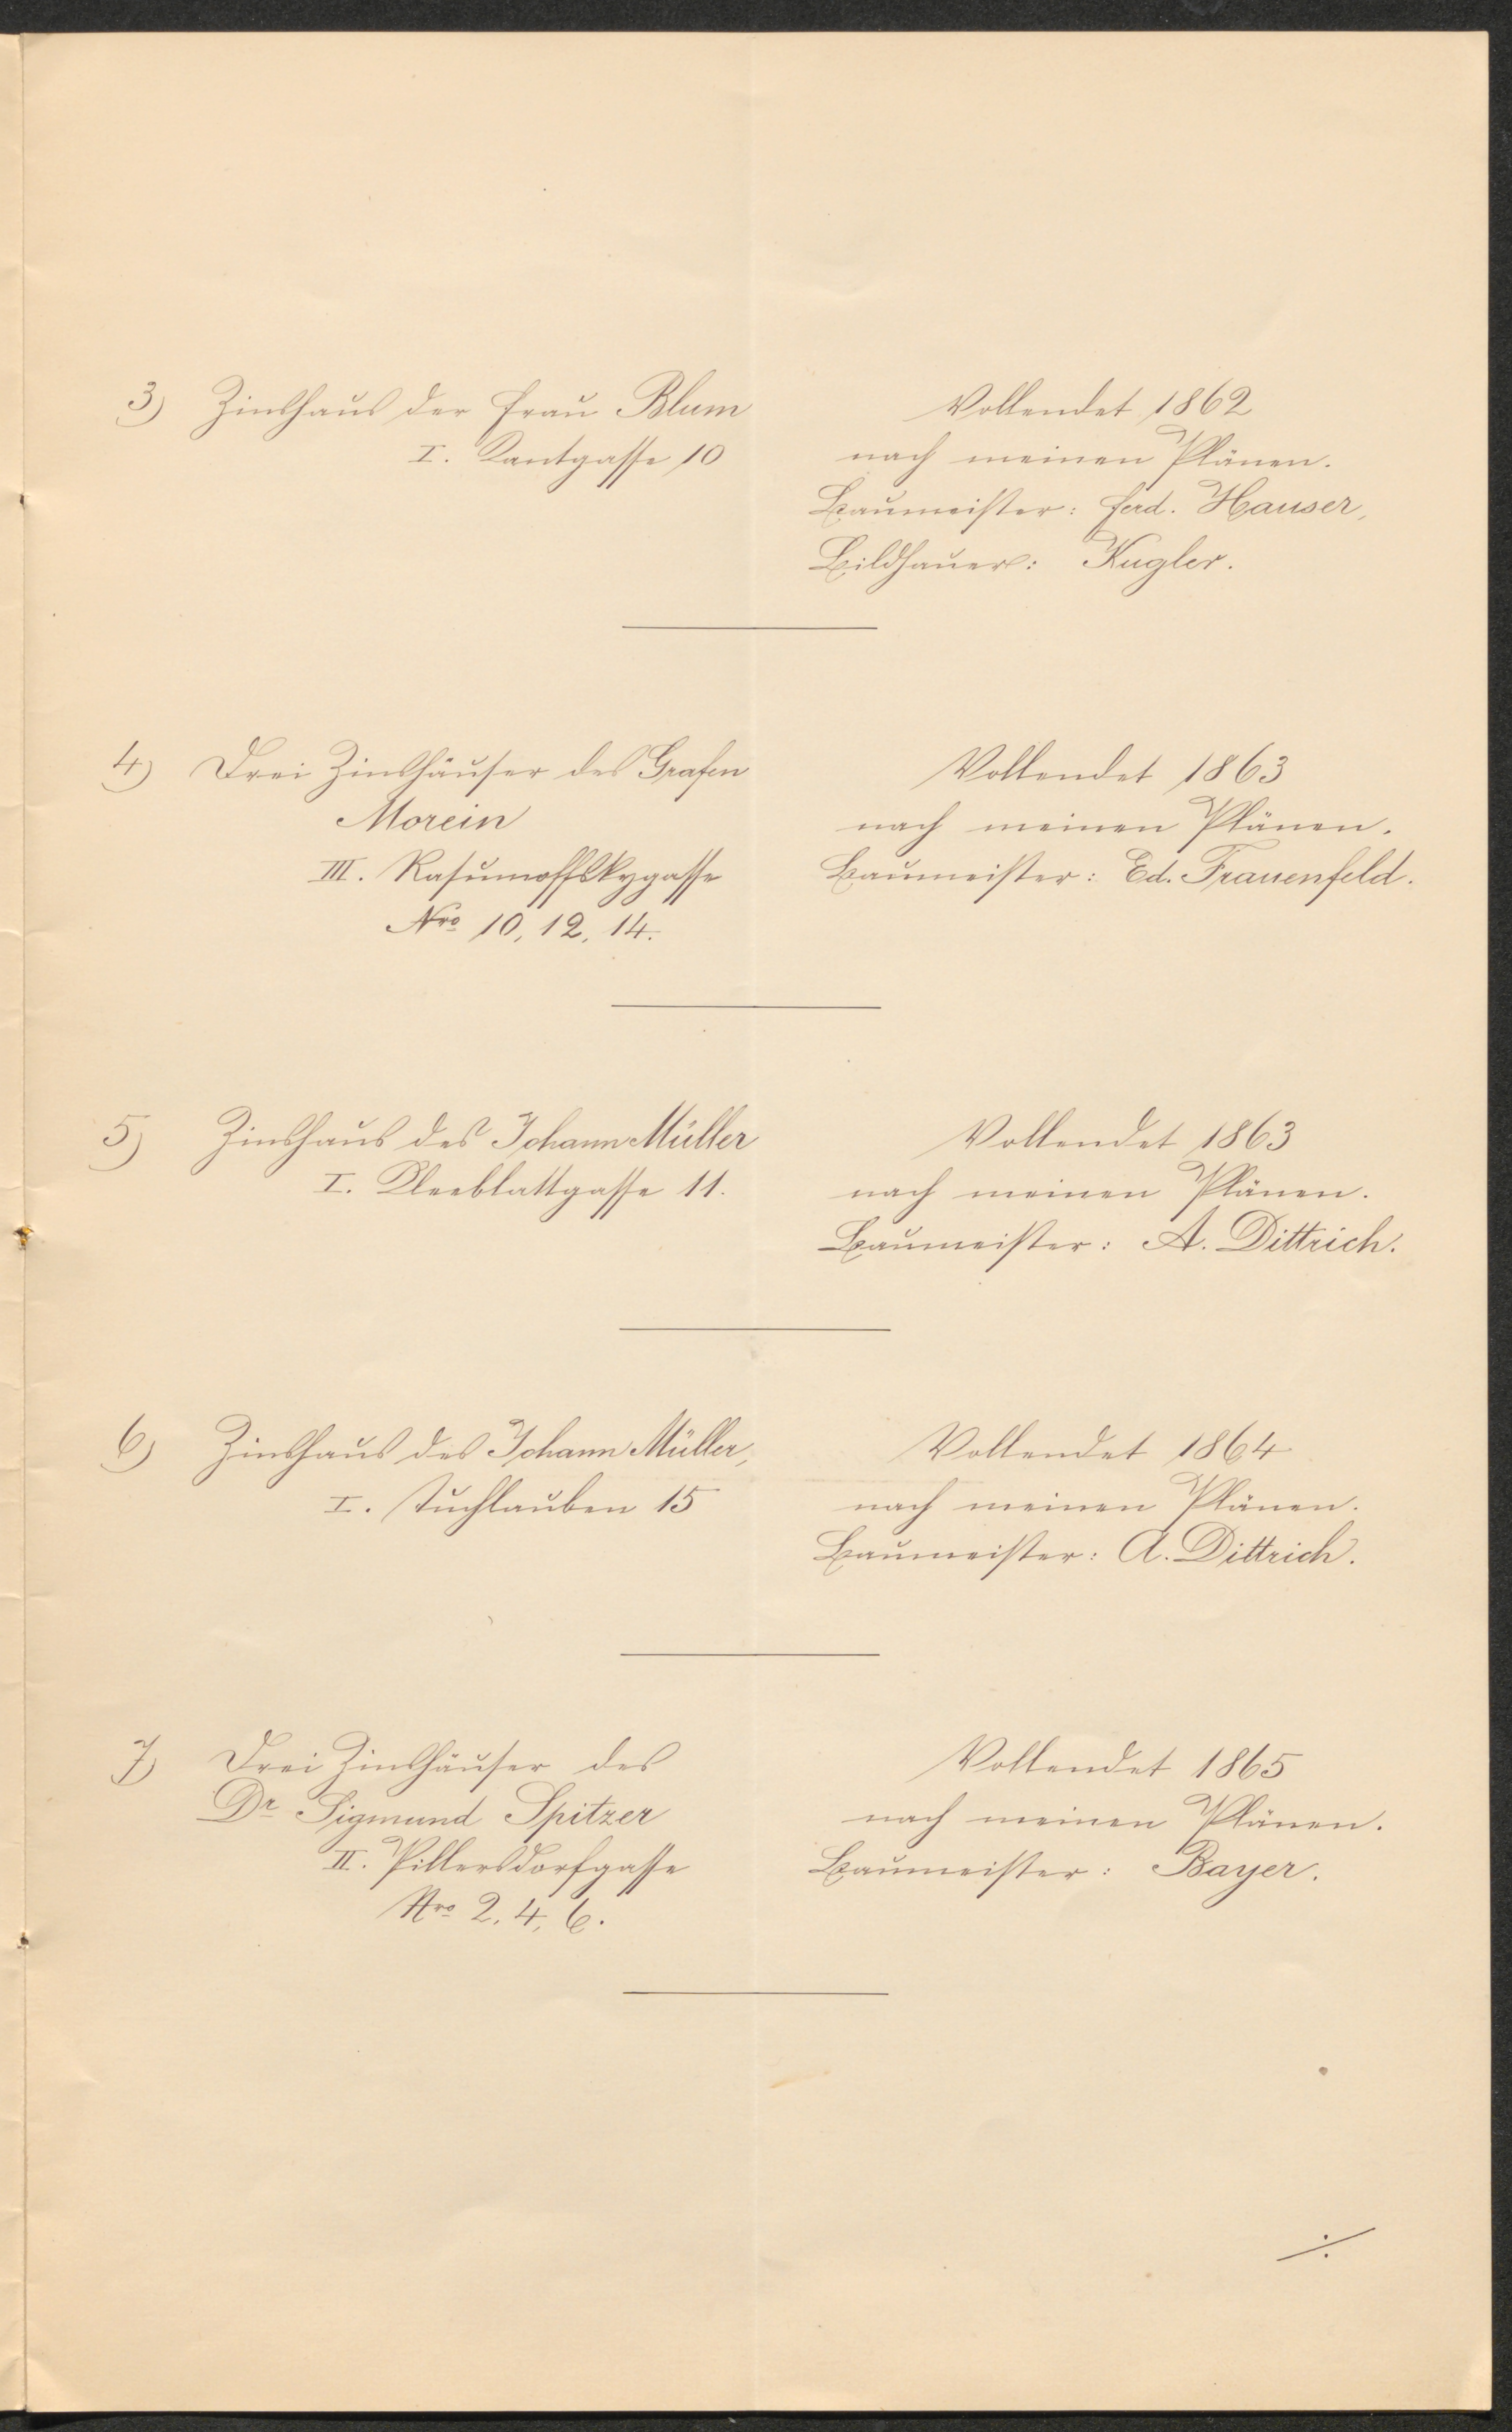 3) Zinshaus der Frau Blum
I. Kantgasse 10
Vollendet 1862
nach meinen Plänen.
Baumeister: Ferd. Hauser,
Bildhauer: Kugler.
4) Drei Zinshäuser des Grafen
Morein
III. Rasumoffskygasse
Nro 10, 12, 14.
Vollendet 1863
nach meinen Plänen.
Baumeister: Ed. Frauenfeld.
5) Zinshaus des Johann Müller
I. Kleeblattgasse 11.
Vollendet 1863
nach meinen Plänen.
Baumeister: A. Dittrich.
6) Zinshaus des Johann Müller,
I. Tuchlauben 15
Vollendet 1864
nach meinen Plänen.
Baumeister: A. Dittrich.
7) Drei Zinshäuser des
Dr Sigmund Spitzer
II. Pillersdorfgasse
Nro 2, 4, 6.
Vollendet 1865
nach meinen Plänen.
Baumeister: Bayer.
./.